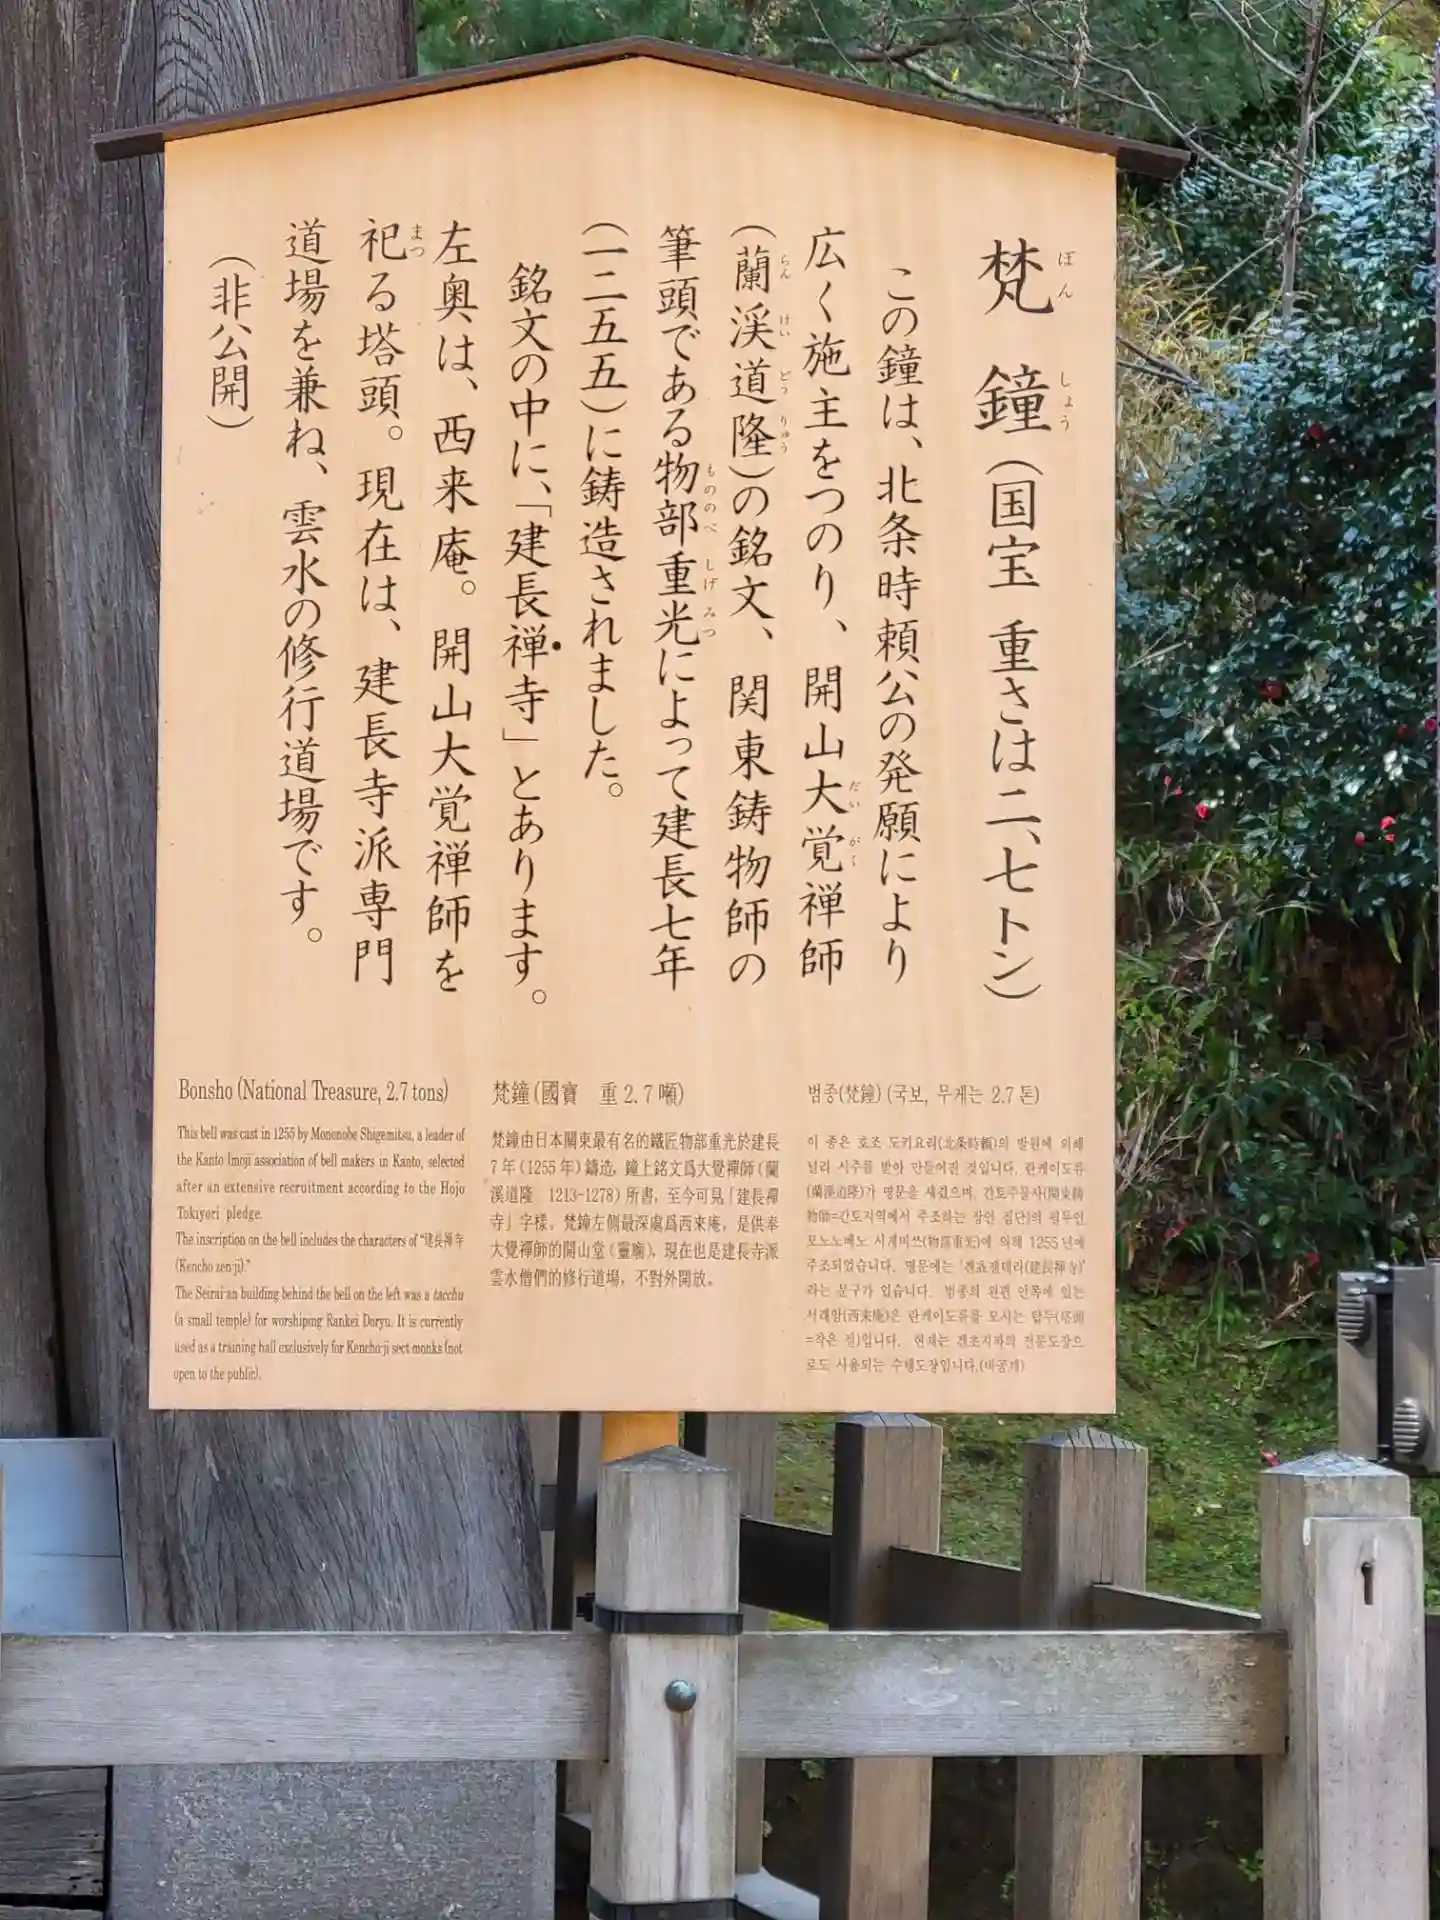 梵鐘(国宝 重さは二、七トン)
この鐘は、北条時頼公の発願により
広く施主をつのり、開山大覚禅師
(蘭渓道隆)の銘文、関東鋳物師の
筆頭である物部重光によって建長七年
(一二五五)に鋳造されました。
銘文の中に、「建長禅寺」とあります。
左奥は、西来庵。開山大覚禅師を
祀る塔頭。現在は、建長寺派専門
道場を兼ね、雲水の修行道場です。
(非公開)
ぼん しょう
だい がく
らん けい どう りゅう
もののべ しげ みつ
まつ
Bonsho (National Treasure, 2.7 tons)
This bell was cast in 1255 by Mononobe Shigemitsu, a leader of
the Kanto Imoji association of bell makers in Kanto, selected
after an extensive recruitment according to the Hojo
Tokiyori pledge.
The inscription on the bell includes the characters of "建長禅寺
(Kencho zen-ji)."
The Seirai-an building behind the bell on the left was a tacchu
(a small temple) for worshiping Rankei Doryu. It is currently
used as a training hall exclusively for Kencho-ji sect monks (not
open to the public).
梵鐘(國寶 重2.7噸)
梵鐘由日本關東最有名的鐵匠物部重光於建長
7年(1255年)鑄造，鐘上銘文爲大覺禪師(蘭
溪道隆 1213-1278)所書，至今可見「建長禪
寺」字樣。梵鐘左側最深處爲西來庵，是供奉
大覺禪師的開山堂(靈廟)，現在也是建長寺派
雲水僧們的修行道場，不對外開放。
범종(梵鐘)(국보, 무게는 2.7톤)
이 종은 호조 도키요리(北条時頼)의 발원에 의해
널리 시주를 받아 만들어진 것입니다. 란케이도류
(蘭溪道隆)가 명문을 새겼으며, 간토주물사(関東鋳
物師=간토지역에서 주조하는 장인 집단)의 필두인
모노노베노 시게미쓰(物部重光)에 의해 1255년에
주조되었습니다. 명문에는 '겐쵸젠데라(建長禅寺)'
라는 문구가 있습니다. 범종의 왼편 안쪽에 있는
서래암(西来庵)은 란케이도류를 모시는 탑두(塔頭
=작은 절)입니다. 현재는 겐초지파의 전문도장으
로도 사용되는 수행도장입니다.(비공개)